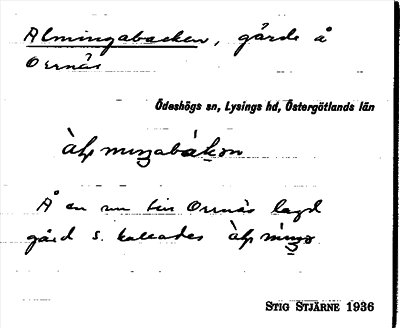 Almingabacken, gärde å
Ornäs
Ödeshögs sn, Lysings hd, Östergötlands län
Å en nu till Ornäs lagd
gård s. kallades
STIG STJÄRNE 1936